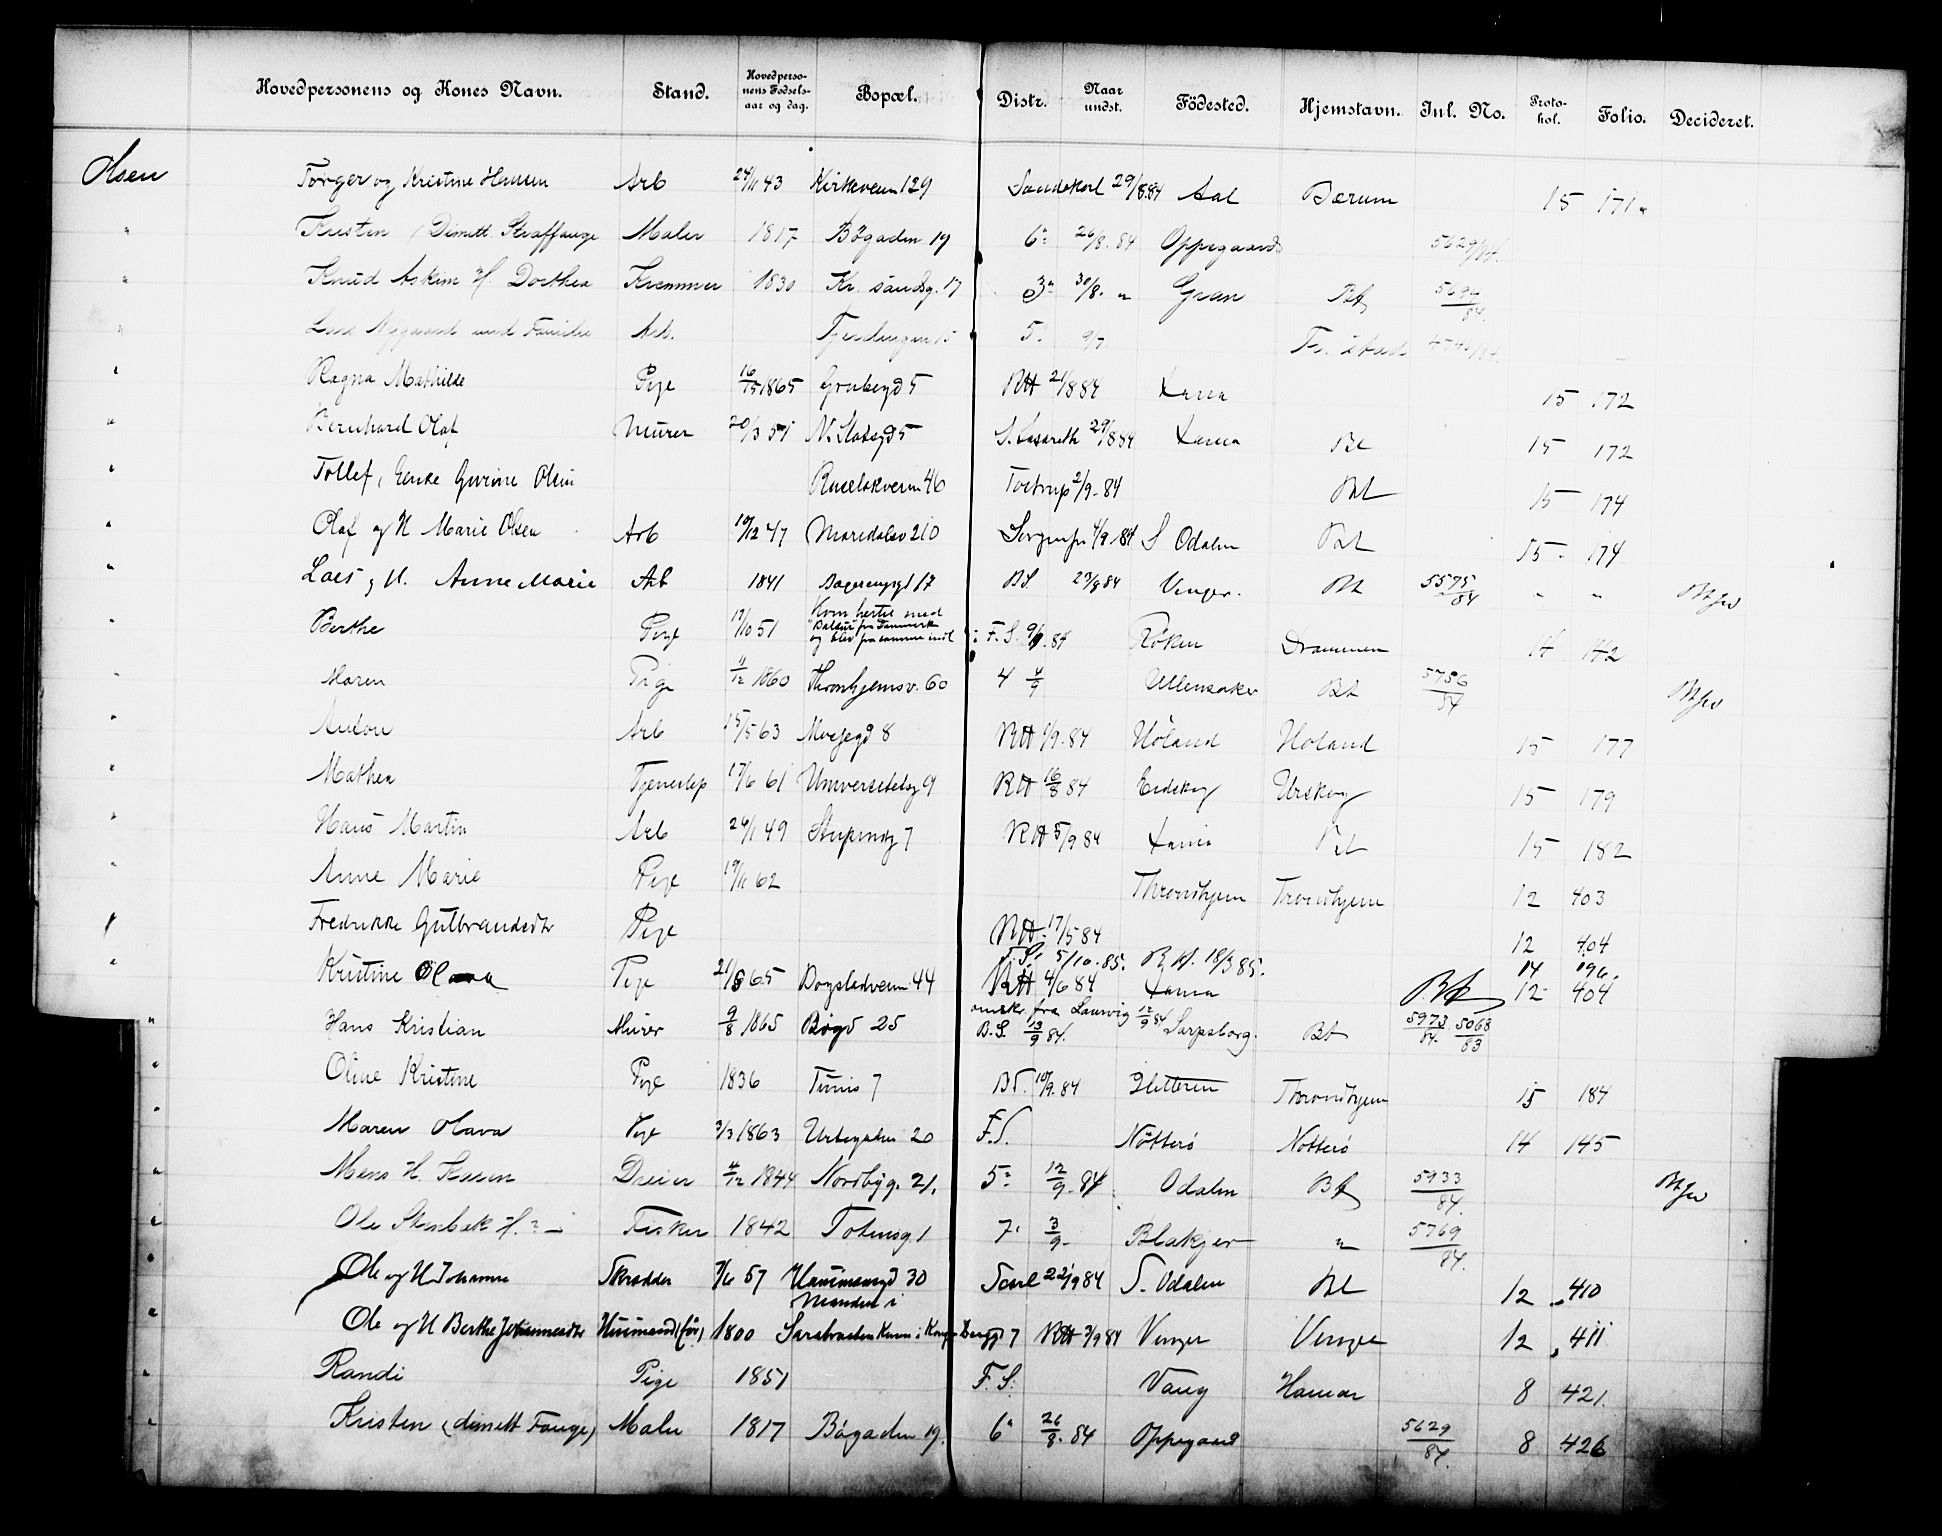 Hovedpersonens og Kones Navn. Stand. Hovedpersonens Fødselsaar og dag. Bopæl. Distr. Naar undst. Födested. Hjemstavn. Inl. No. Protokol. Folio. Decideret.
Olsen Torger og Kristine Hansen Arb 24/11 43 Kirkeveien 129 29/8.84 Aal Bærum 15 171
" Kristen (Dimitt. Straffange Maler 1817 Bøgaden 19 6" 26/8.84 Oppegaard 5629/84.
" Knud Askim H. Dorthea Kræmmer 1830 Kr. sandsg. 17 3" 30/8. " Gran Bt 5694/84.
" med Familie Arb. Fjerdingen 15 5. 9/7 Fr. stad
" Ragna Mathilde Pige 16/5 1865 Grubegd 5 RH 21/8 84 Xania 15 172
" Bernhard Olaf Murer 20/3 51 N. Slotsgd 5 S. Lasareth 29/8 84 Xania Bt 15 172
" Tollef, Enke Gurine Olsen Ruseløkveien 46 Tostrup 2/9-84 Bt 15 174
" Olaf og H Marie Olsen Arb 10/12 47 Maridalsv 210 4/9 84 S Odalen Bt 15 174
" Lars og H. Anne Marie Arb 1841 17 BS. 23/8 84 Vinger. Bt 5575/84 " "
" Berthe Pige 17/10 51 Kom hertil med "Baldur" fra Danmark og blev fra samme indl F. S. 9/9.84 Røken Drammen 14 142
" Maren Pige 4/12 1860 Thronhjemsv. 60 4 4/9 Ullensaker Bt 5756/84
" Anton Arb 15/5 63 8 RH 1/9.84 Høland Høland 15 177
" Mathea Tjenestep 17/6 61 Universitetsg 9 RH 16/8 84 Eidskog Urskog 15 179
" Hans Martin Arb 24/1 49 7 RH 5/9 84 Xania Bt 15 182
" Anne Marie Pige 19/11 62 Throndhjem Trondhjem 12 403
" Fredrikke Gulbrandsdtr Pige RH 17/5 84 12 404
F.S. 5/10.85. R.H. 18/3 85. 14 196.
" Kristine Olava Pige 21/8 65 Bogstadveien 44 RH 4/6 84 Xania Bt 12 404
" Hans Kristian Murer 9/8 1865 Bøgd 25 fra Laurvig 12/9 84 B.S. 13/9 84. Sarpsborg. Bt 5973/84. 5068/83
" Oline Kristine Pige 1836 Tunis 7 BS. 10/9.84 Hitteren Throndhjem 15 184
" Maren Olava Pige 3/3 1863 Urtegaden 20 F.S. Nøtterø Nøtterø 14 145
" H. Karen Dreier 4/12 1844 Nordbyg. 21. 5" 12/9.84 Odalen Bt 5933/84.
" Ole Stenbæk H. ? — Fisker 1842 Totensg. 1 7. 3/9- Blakjer " 5769/84.
" Ole og H Johanne Skrædder 7/6 57 Hausmansgd 30 22/9 84 S. Odalen Bt 12 410
" Ole og H Berthe Johannesdtr Husmand (før) 1800 Manden i Sarabraaten Konen i Kongensgd 7 RH 3/9 84 Vinger Vinger 12 411
" Randi Pige 1851 F. S. Vang Hamar 8 421.
" Kristen (dimitt Fange) Maler 1817 Bøgaden 19. 6" 26/8. 84 Oppegaard 5629/84. 8 426